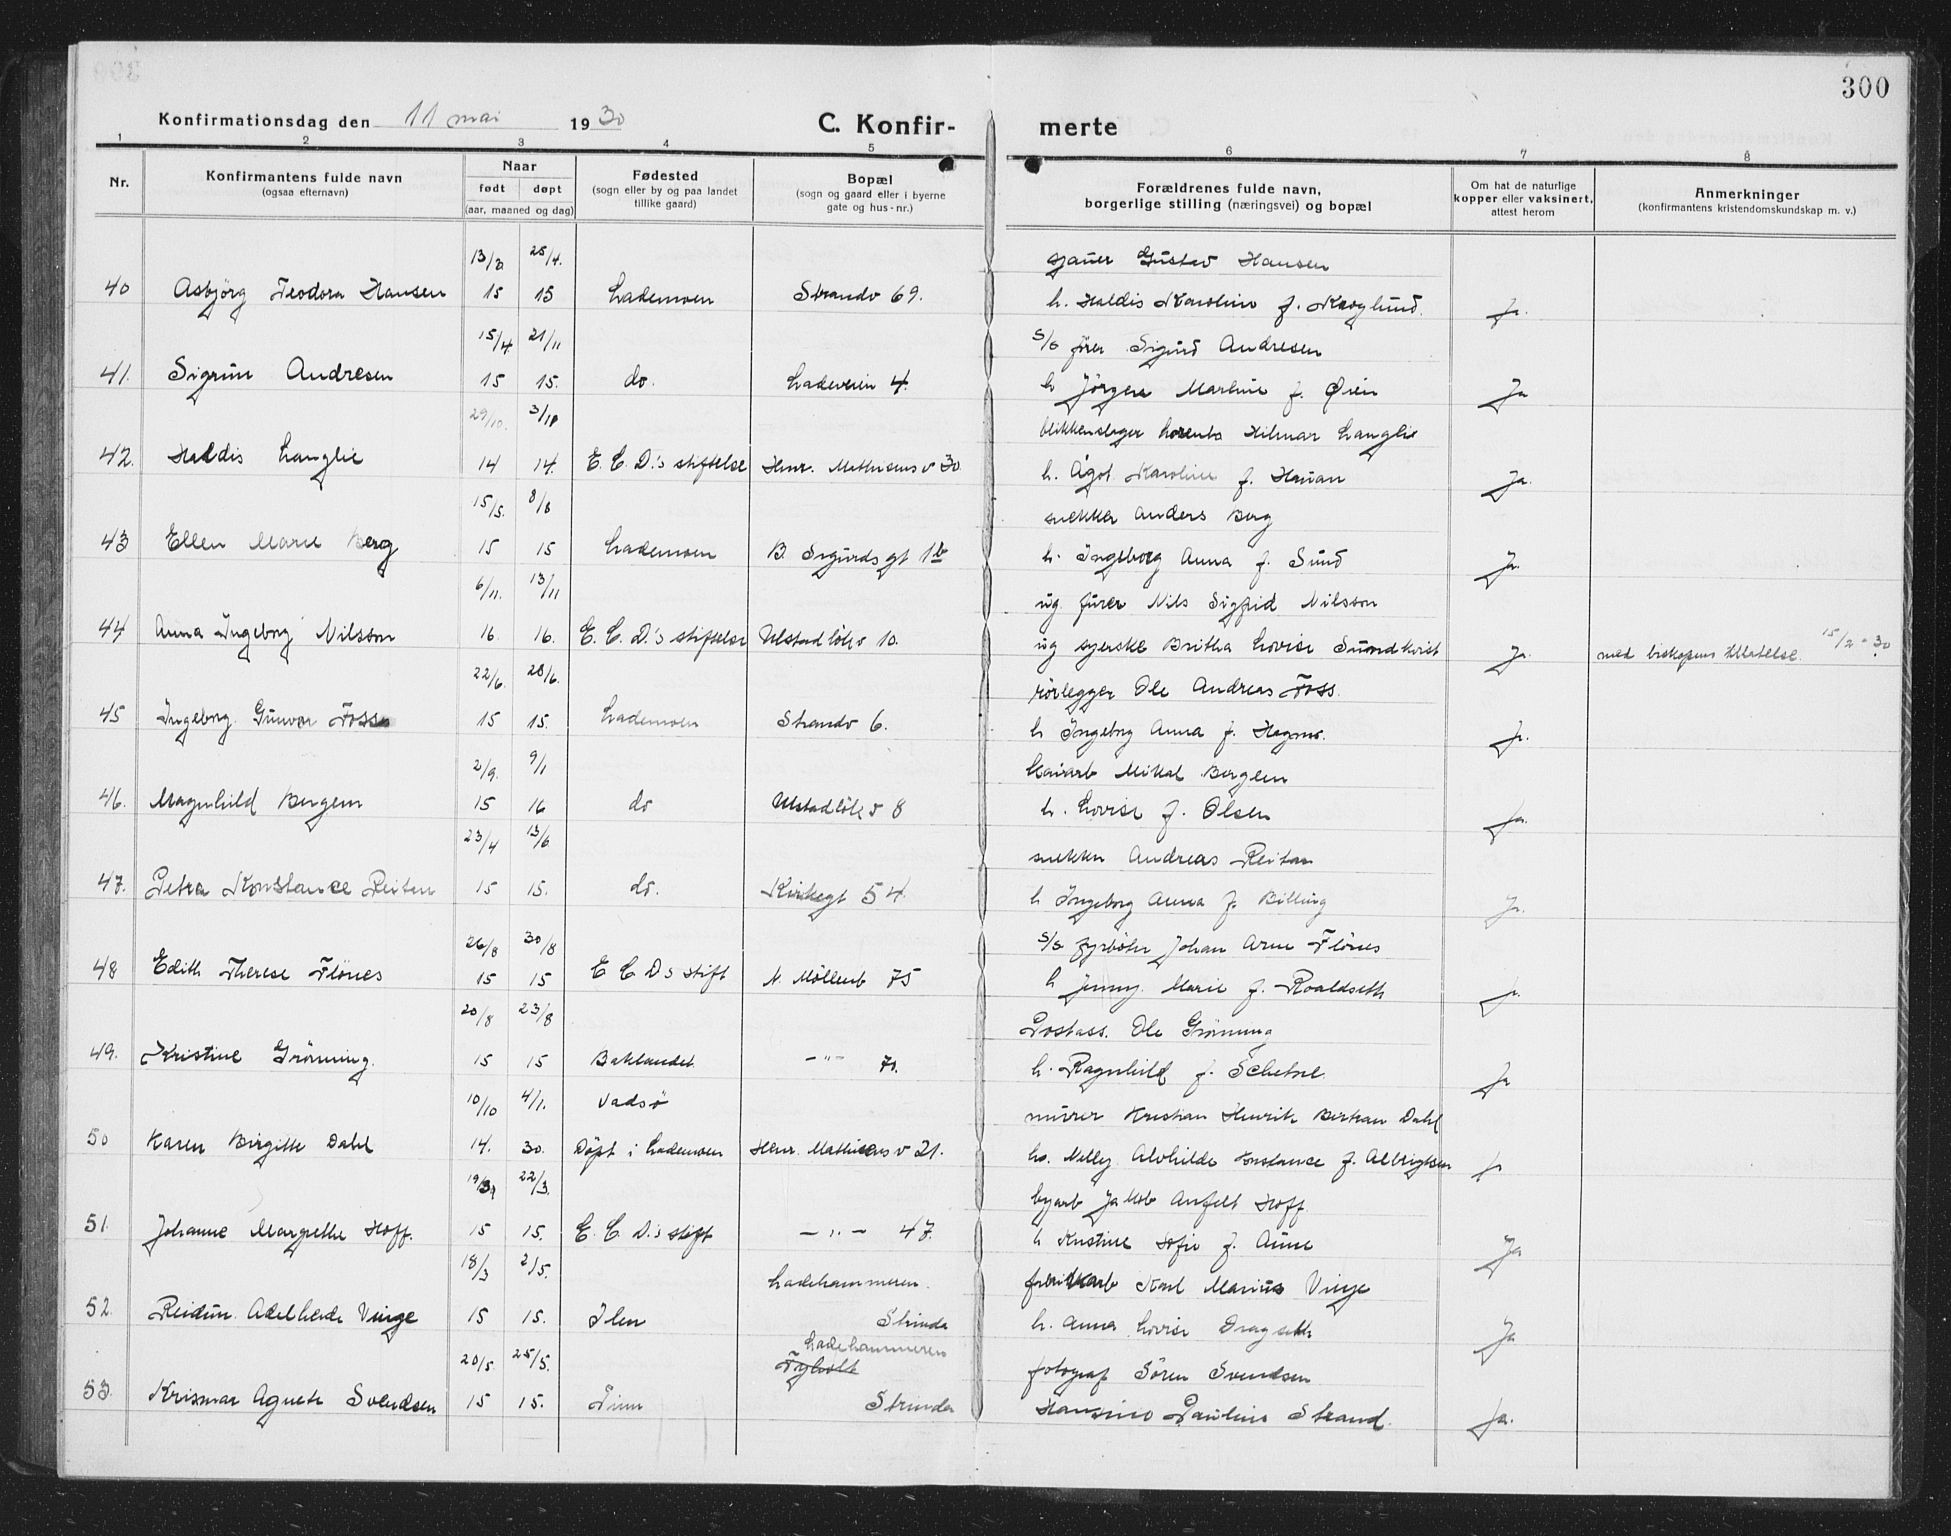 300
Konfirmationsdag den 11 mai 1930
C. Konfir- merte
1 2 3 4 5 6 7 8
Nr.
Konfirmantens fulde navn
(ogsaa efternavn)
Naar
født døpt
(aar, maaned og dag)
Fødested
(sogn eller by og paa landet
tillike gaard)
Bopæl
(sogn og gaard eller i byerne
gate og hus-nr.)
Forældrenes fulde navn,
borgerlige stilling (næringsvei) og bopæl
Om hat de naturlige
kopper eller vaksinert,
attest herom
Anmerkninger
(konfirmantens kristendomskundskap m. v.)
25/4. sjauer Gustav Hansen
40 Asbjörg Teodora Hansen 15 15 Lademoen Strandv 69. h. Haldis Karoline f. Ja.
15/4 21/11 S/s fører Sigurd Andresen
41. Sigrun Andresen 15 15. do. Ladeveien 4. h Jörgine Marline f. Øien Ja
29/10. 3/10 blikkenslager Lorents Hilmar Langlie
42. Haldis Langlie 14 14. E. C. D.'s stiftelse Henr. Mathisens v 30 h. Ågot Karoline f. Hauan Ja.
15/5. 8/8 snekker Anders Berg
43 Ellen Marie Berg 15 15 Lademoen B. Sigurds gt 1b h. Ingeborg Anna f. Sund Ja.
6/11. 13/11 ug. furer Nils Sigfrid Nilsson
44 Anna Ingeborg Nilsson 16. 16. E. C. D.'s stiftelse Ulstadløkv 10. ug syerske Britha Lovise Sundkvist Ja. med biskopens tillatelse. 15/2 - 30
22/6. 28/6. rørlegger Ole Andreas Foss.
45 Ingeborg Gunvor Foss 15 15. Lademoen Strandv 6. h Ingeborg Anna f. Ja.
2/9. 9/1 Kaiarb Mikal Bergem
46. Magnhild Bergem 15 16 do Ulstadløk v 8 h. Lovise f. Olsen Ja.
23/4 13/6 snekker Andreas Reitan
47. Petra Konstance Reitan 15 15. do. Kirkegt 54. h Ingeborg Anna f. Billing Ja.
26/8 30/8 S/s fyrbøter Johan Arne Flönes
48 Edith Therese Flönes 15 15 E C D's stift N. Møllenb 75 h Jenny Marie f. Roaldseth Ja.
20/8 23/8 Postass. Ole Grönning
49. Kristine Grönning. 15 15 Baklandet - " - 70. h. Ragnhild f. Schetne Ja
10/10 4/1. Vadsö murer Kristian Henrik Bertran Dahl
50 Karen Birgitte Dahl 14. 30. Döpt i Lademoen Henr. Mathisens v 21. h. Nelly Alvhilde Konstance f. Albrigtsen Ja
22/3. byarb Jakob Anfelt Hoff
51. Johanne Margrethe Hoff. 15 15. E. C. D.'s stift - " - 47. h Kristine Sofie f. Aune Ja
18/3 2/5. Ladehammeren. fabrikkarb Karl Marius Vinge
52. Reidun Adelheide Vinge 15 15. Ilen Strinda h. Anna Lovise Dragseth Ja
20/5 25/5. Ladehammeren fotograf Sören Svendsen
53. Agnete Svendsen 15 15. Strinda Pauline Strand. Ja.